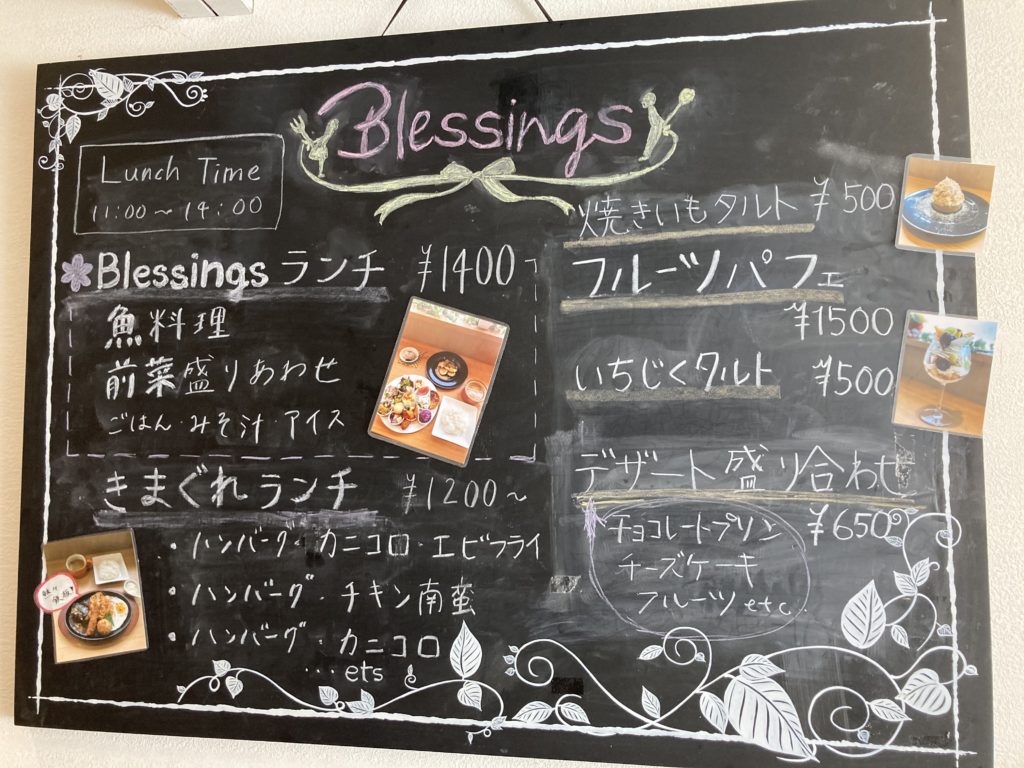 Blessings
Lunch Time
11:00～14:00
Blessings ランチ ¥1400
魚料理
前菜盛りあわせ
ごはん・みそ汁・アイス
きまぐれランチ ¥1200～
・ハンバーグ・カニコロ・エビフライ
・ハンバーグ・チキン南蛮
・ハンバーグ・カニコロ
…ets
焼きいもタルト ¥500
フルーツパフェ
¥1500
いちじくタルト ¥500
デザート盛り合わせ
¥650
チョコレートプリン
チーズケーキ
フルーツ etc.